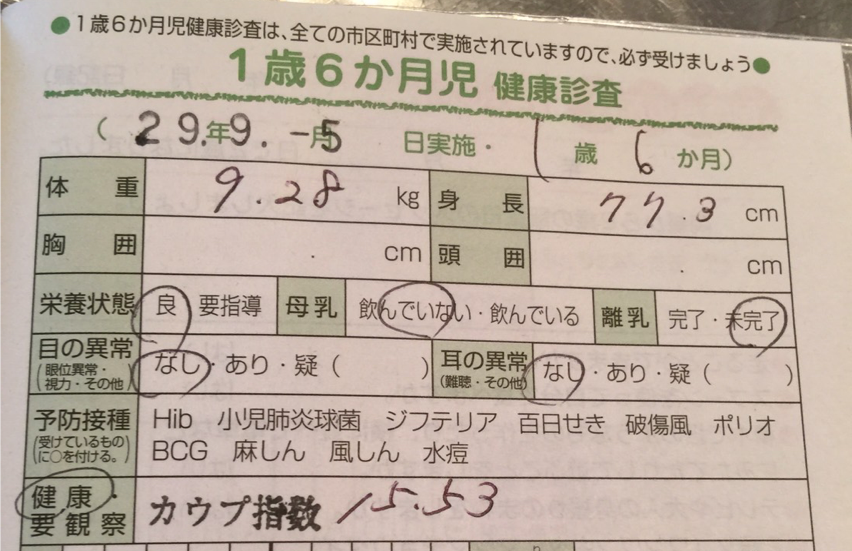 ●1歳6か月児健康診査は、全ての市区町村で実施されていますので、必ず受けましょう●
1歳6か月児 健康診査
(29.年9.-月5日実施・1歳6か月)
体重 9.28 kg 身長 77.3 cm
胸囲 . cm 頭囲 . cm
栄養状態 良 要指導 母乳 飲んでいない・飲んでいる 離乳 完了・未完了
目の異常(眼位異常・視力・その他) なし・あり・疑( ) 耳の異常(難聴・その他) なし・あり・疑( )
予防接種(受けているものに○を付ける。) Hib 小児肺炎球菌 ジフテリア 百日せき 破傷風 ポリオ
BCG 麻しん 風しん 水痘
健康・要観察 カウプ指数 15.53